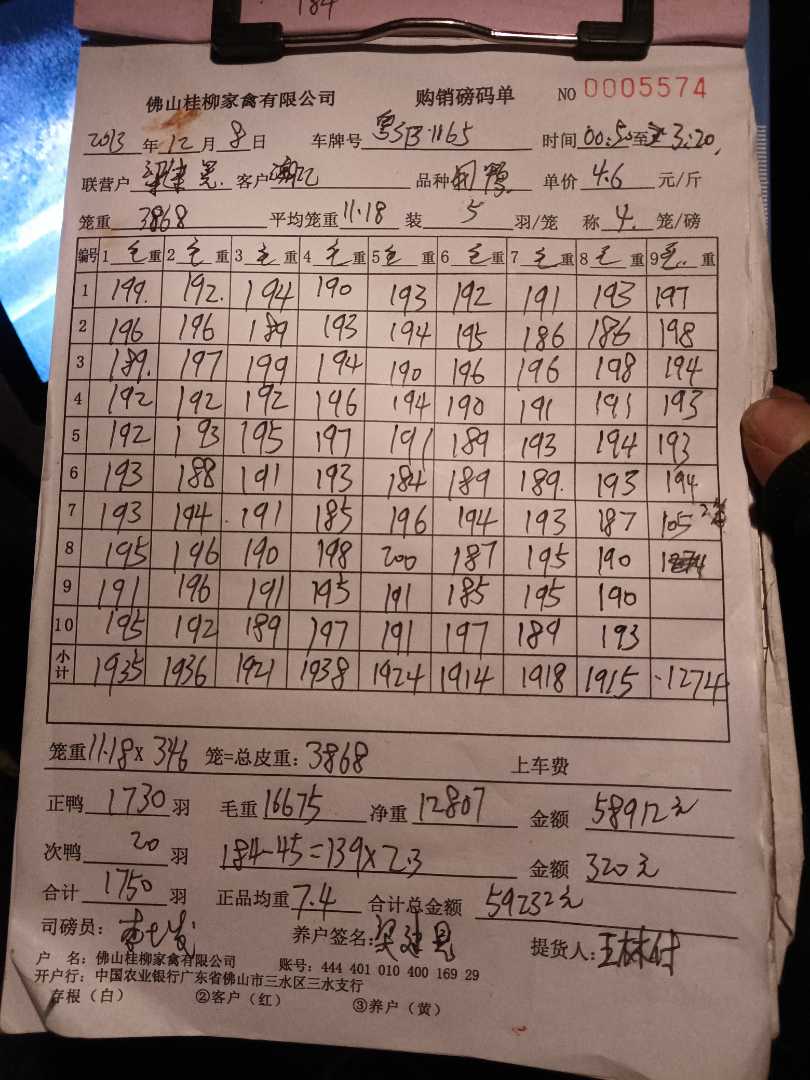 184
佛山桂柳家禽有限公司 购销磅码单 NO 0005574
2013年12月8日 车牌号 粤 1165 时间 00:50至3:20
联营户 客户 品种 单价 4.6 元/斤
笼重 3868 平均笼重 11.18 装 5 羽/笼 称 4. 笼/磅
编号 1 毛重 2 毛重 3 毛重 4 毛重 5 毛重 6 毛重 7 毛重 8 毛重 9 毛重
1 199. 192. 194 190 193 192 191 193 197
2 196 196 189 193 194 195 186 186 198
3 189. 197 199 194 190 196 196 198 194
4 192 192 192 196 194 190 191 191 193
5 192 193 195 197 191 189 193 194 193
6 193 188 191 193 184 189 189. 193 194
7 193 194 191 185 196 194 193 187 105
8 195 196 190 198 200 187 195 190
9 191 196 191 195 191 185 195 190
10 195 192 189 197 191 197 189 193
小计 1935 1936 1921 1938 1924 1914 1918 1915 1274
笼重 11.18 X 346 笼=总皮重: 3868 上车费
正鸭 1730 羽 毛重 16675 净重 12807 金额 58912元
次鸭 20 羽 184-45=139×2.3 金额 320元
合计 1750 羽 正品均重 7.4 合计总金额 59232元
司磅员: 养户签名: 提货人:
户 名: 佛山桂柳家禽有限公司 账号: 444 401 010 400 169 29
开户行: 中国农业银行广东省佛山市三水区三水支行
存根(白) ②客户(红) ③养户(黄)